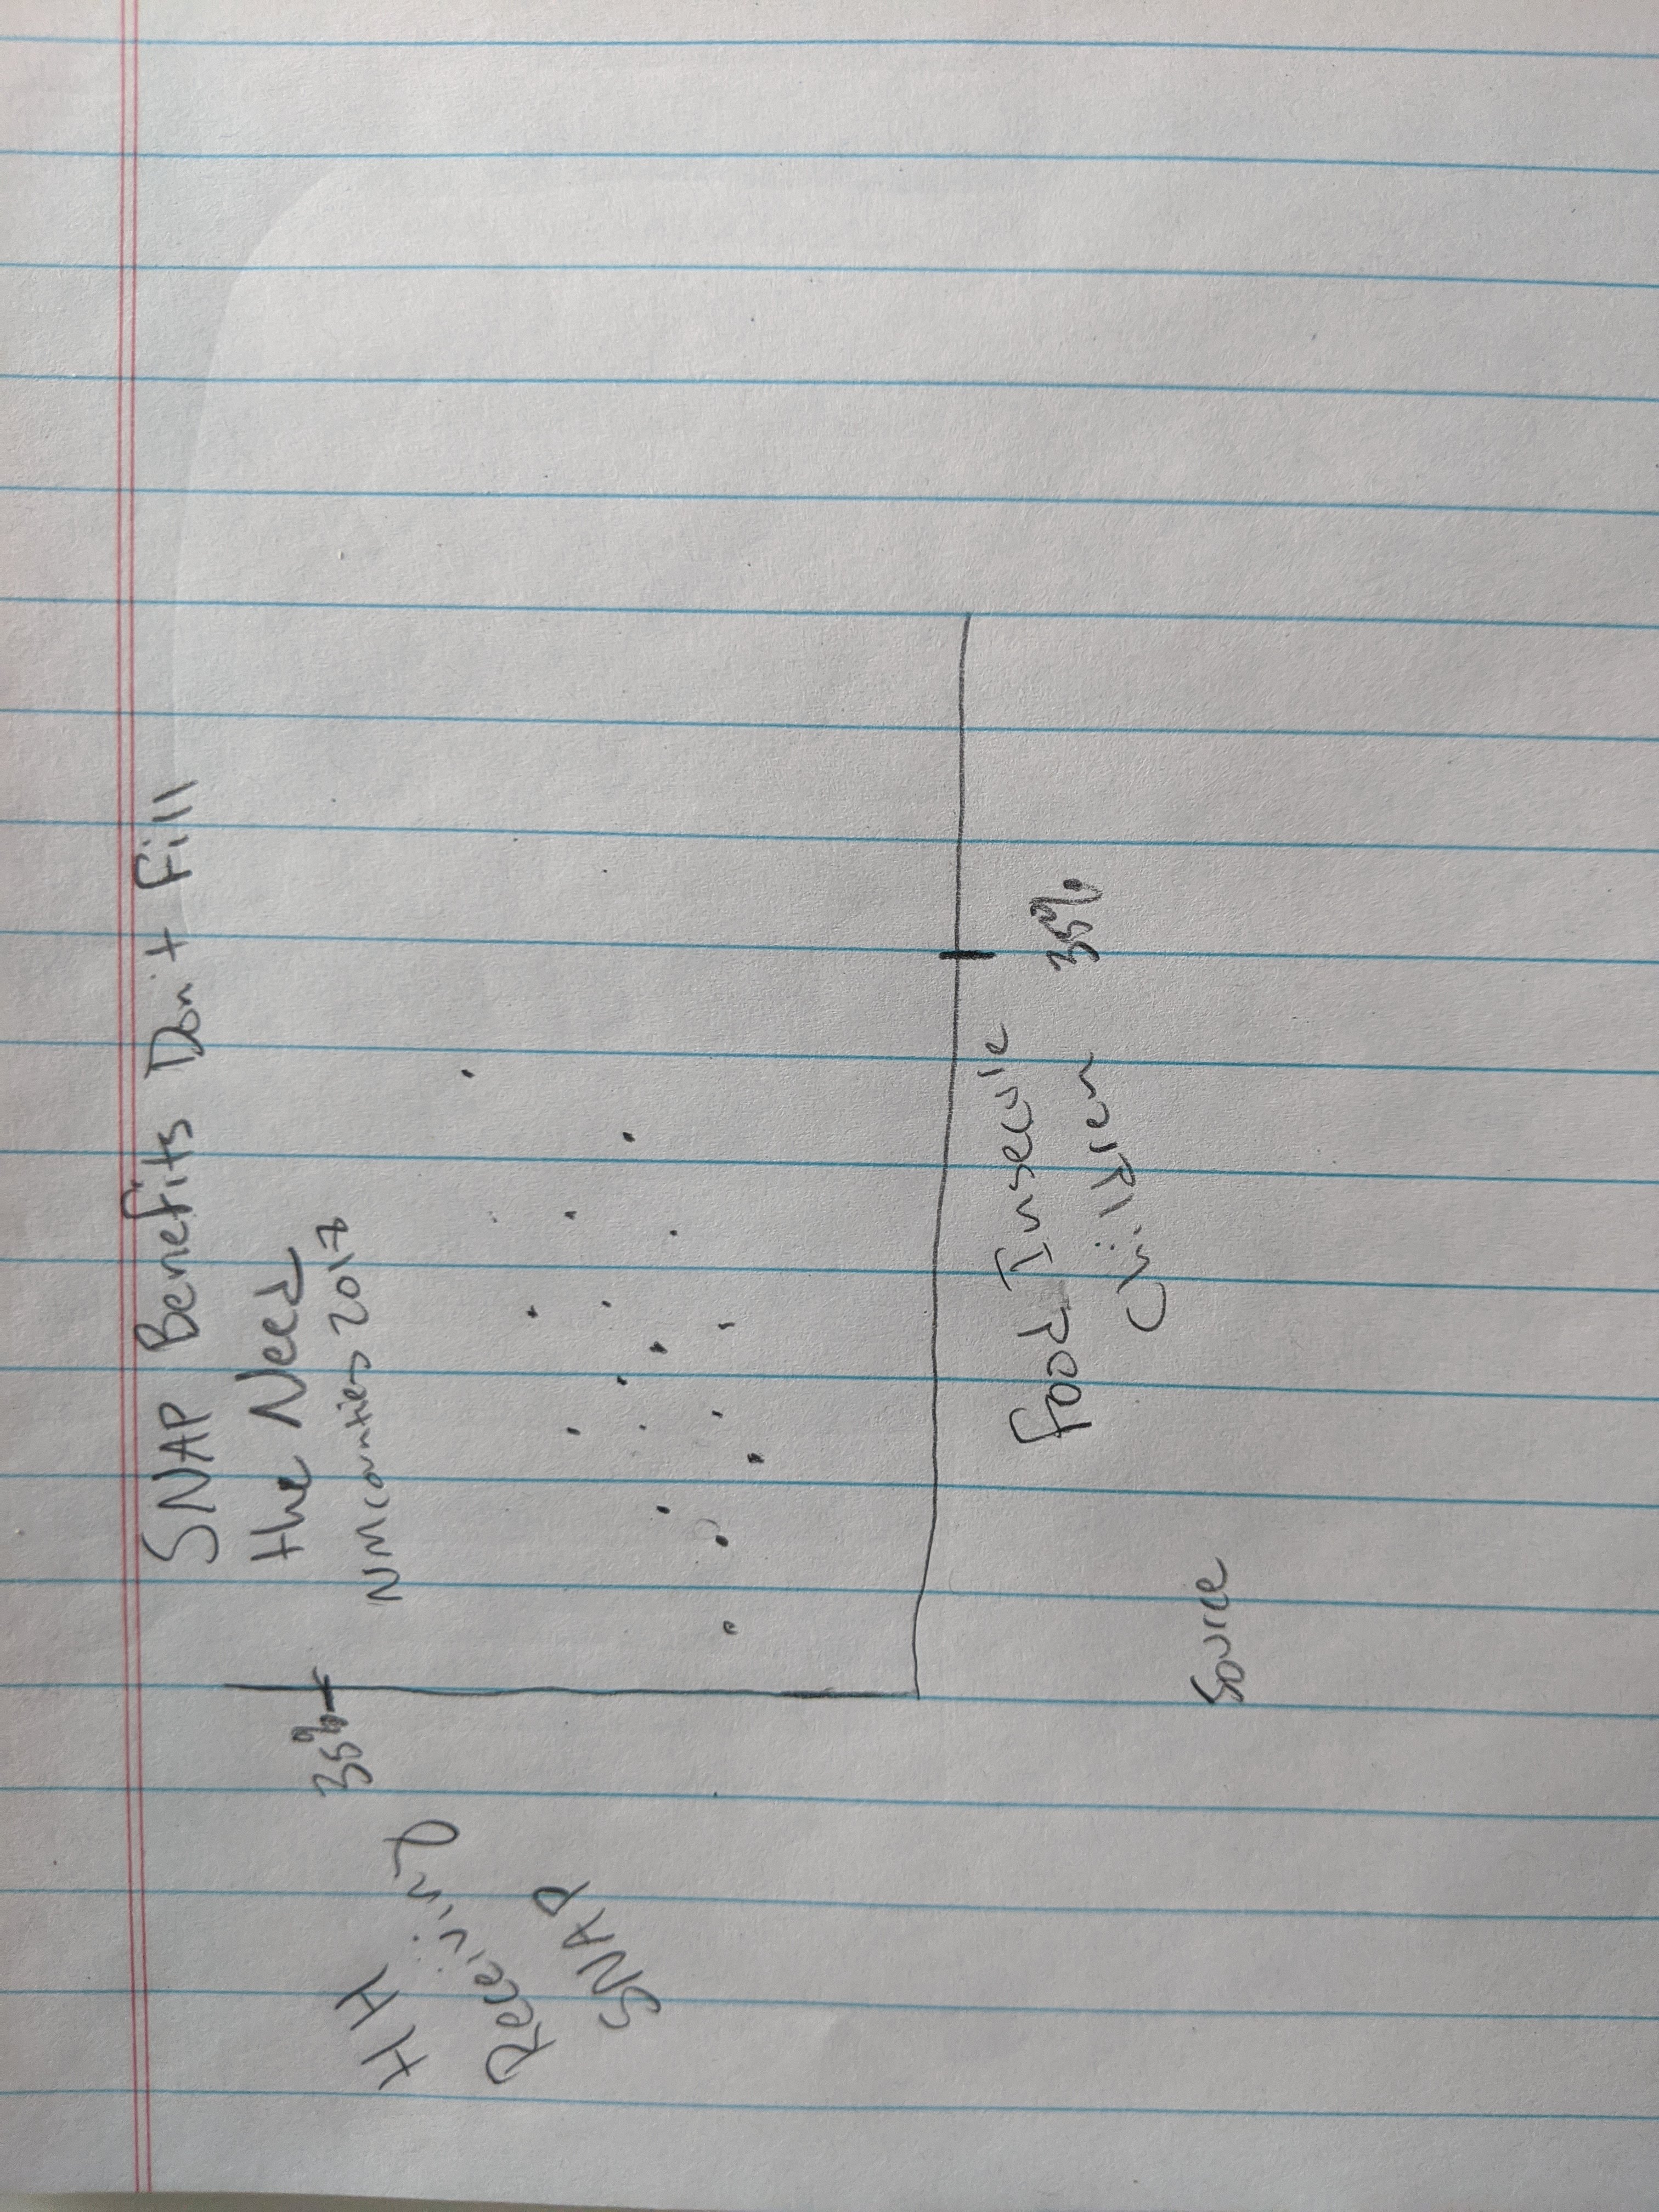 SNAP Benefits Don't Fill
the Need
NM counties 2018
35%
HH
Receiving
SNAP
Food Insecure
Children
35%
Source